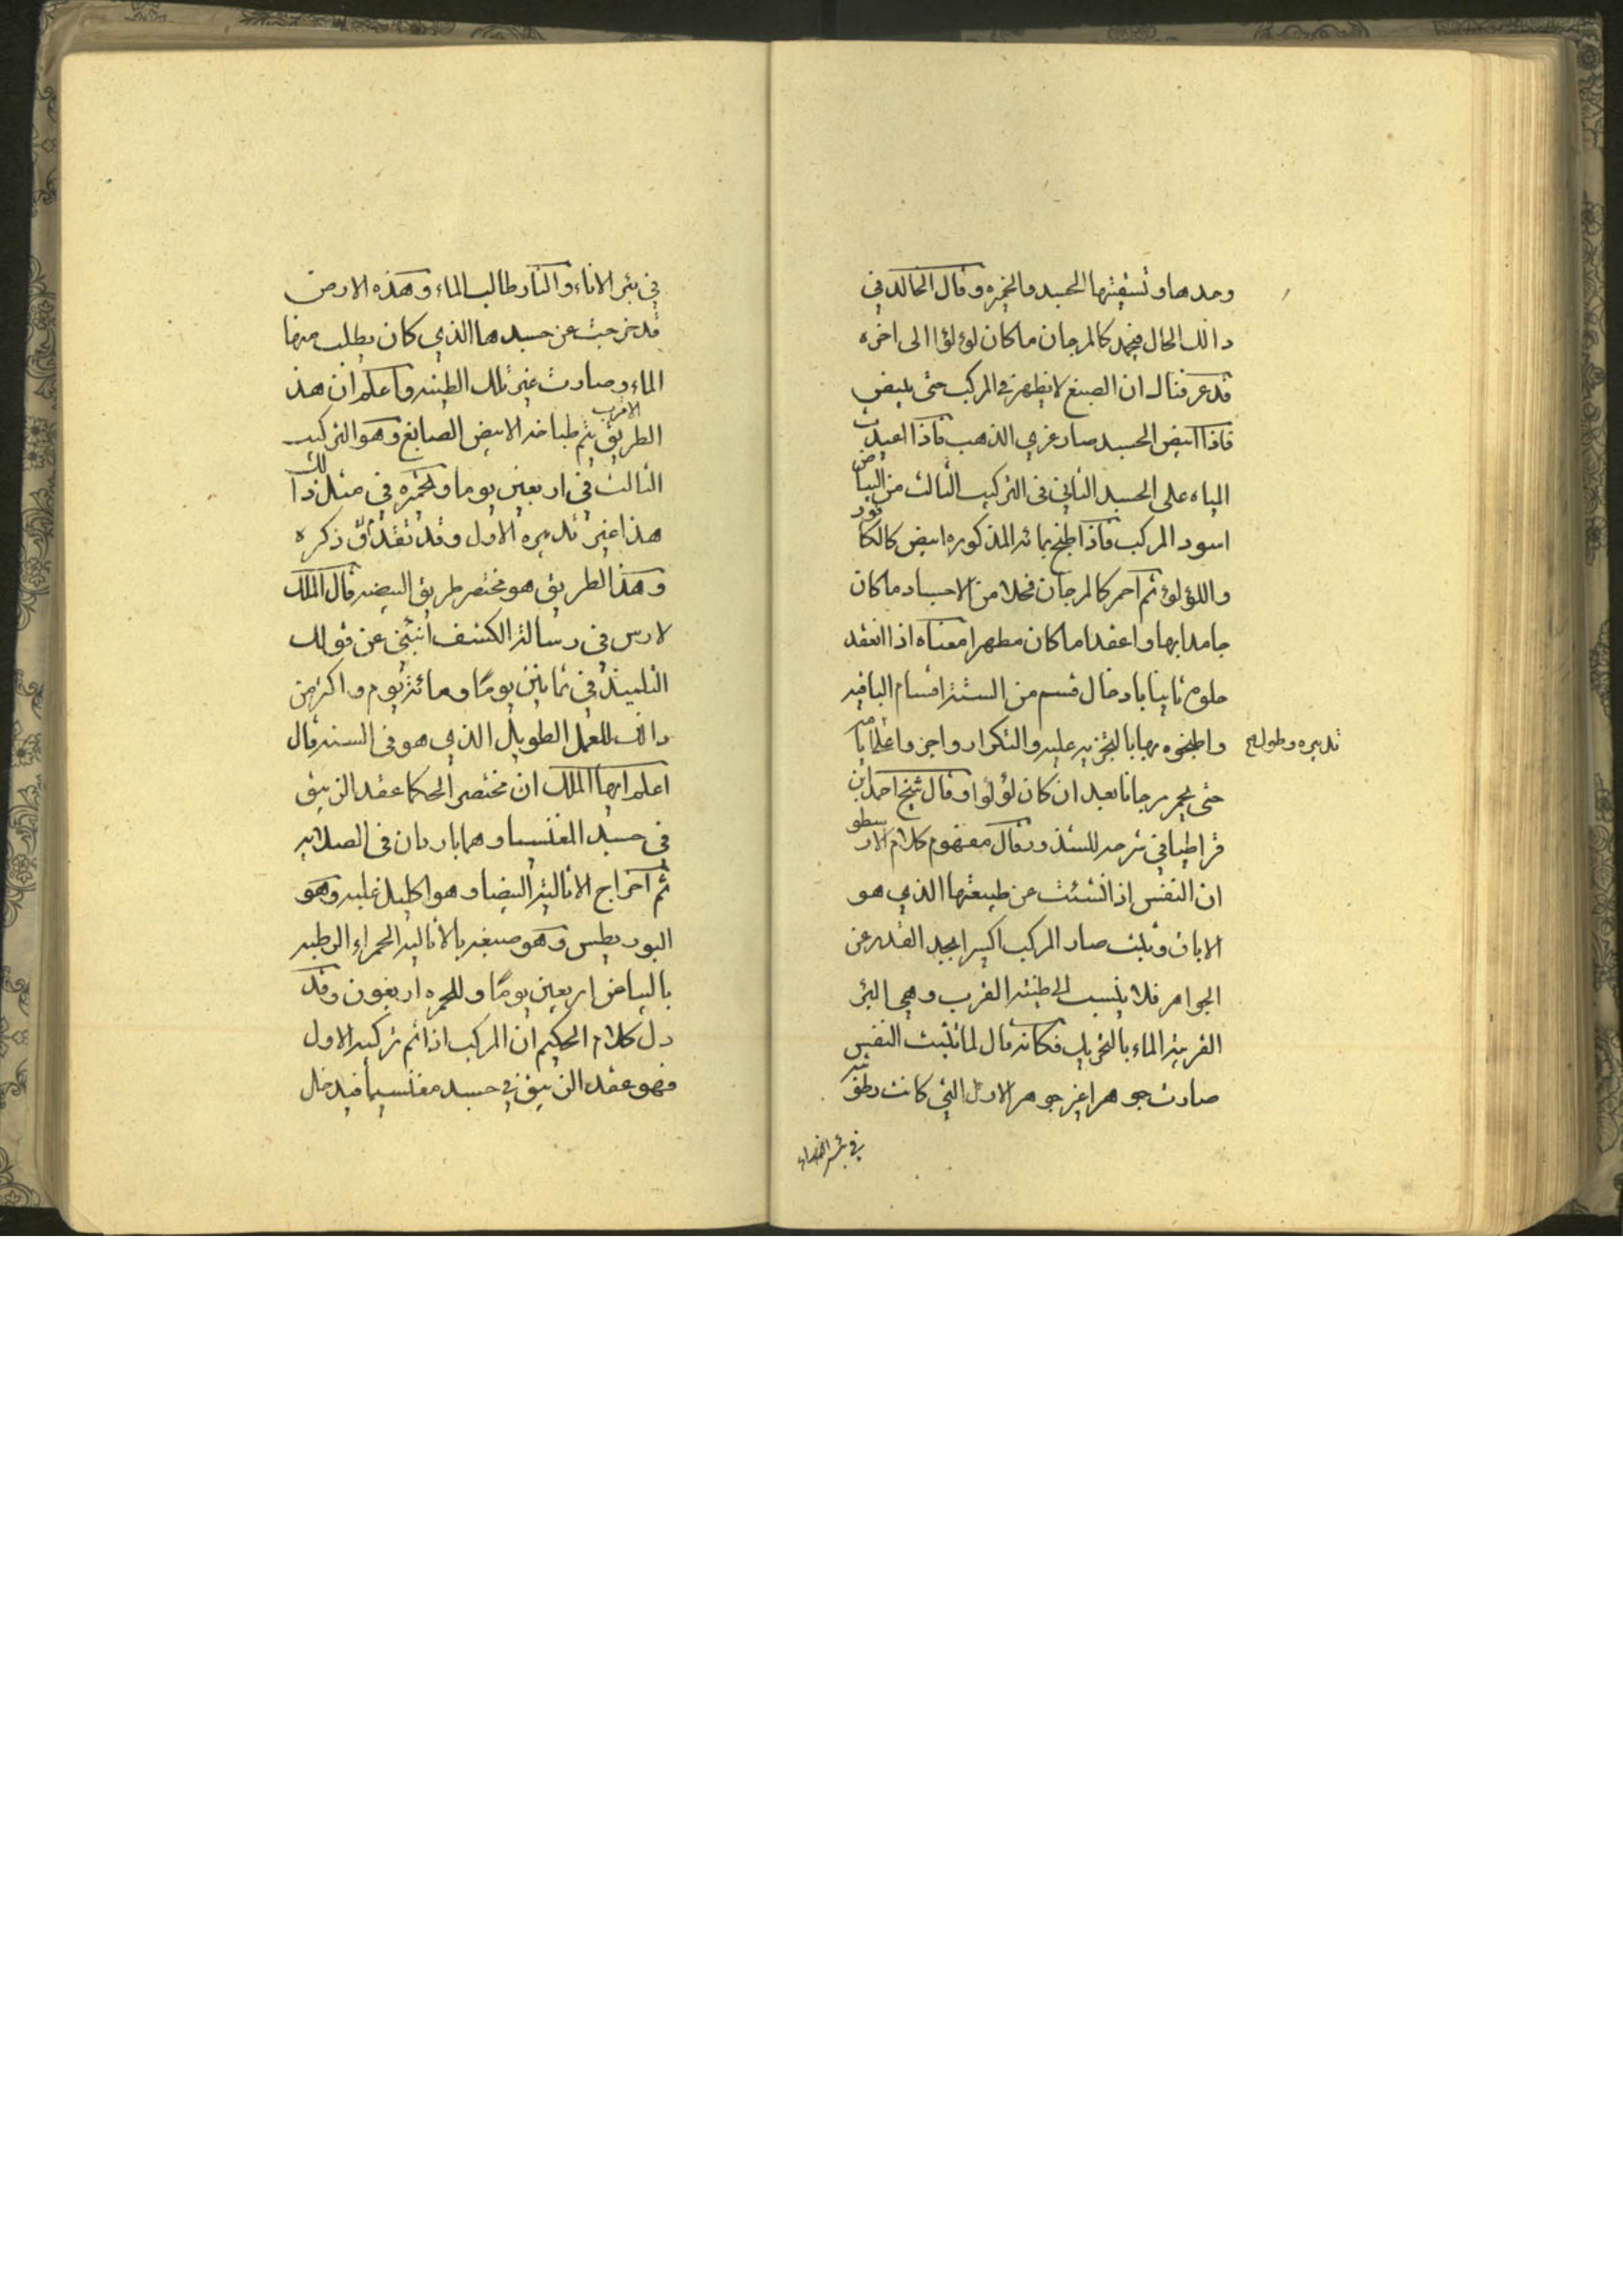 وحدها وتسقيتها الجسد والخمره وقال الخالد في
ذالك الحال فيجمد كالمرجان ما كان لؤلؤا الى اخره
قد عرفناك ان الصبغ لا يظهر في المركب حتى يبيض
فاذا ابيض الجسد صار غري الذهب فاذا اعيدت
المياه على الجسد الثاني في التركيب الثالث من البياض
اسود المركب فاذا طبخ بمائه المذكوره ابيض كالكافور
واللؤلؤ ثم احمر كالمرجان فحلا من الاجساد ما كان
جامدا بها واعقدا ما كان مطهرا معناه اذا انعقد
حلوه ثانيا بادخال قسم من الستة اقسام الباقيه
واطبخوه بها بالتجزيه عليه والتكرار
تدبيره وطوله
حتى يحمر مرجانا بعد ان كان لؤلؤا وقال شيخ احمد ابن
في شرحه للشذور قال مفهوم كلام الارسطو
ان النفس اذا نشئت عن طبيعتها الذي هو
الاباق وثبتت صار المركب اكسيرا بجد القدر عن
الجواهر فلا ينسب الى طينته القرب وهي البئر
القريبة الماء بالتخريب فكانه قال لما ثبتت النفس
صارت جوهرا غير جوهر الاول التي كانت
في بئر
في بئر الاناء والنار طالب الماء وهذه الارض
قد خرجت عن جسدها الذي كان يطلب منها
الماء وصارت غير تلك الطينه واعلم ان هذ
الطريق الاقرب يتم طباخه الابيض الصابغ وهو التركيب
الثالث في اربعين يوما ولحمره في مثل ذالك
هذا غير تدبيره الاول وقد تقدم ذكره
وهذا لطريق هو مختصر طريق البيضه قال الملك
لارس في رسالة الكشف انبئني عن قولك
التلميذ في ثمانين يومًا ومائة يوم واكثر من
ذالك للعمل الطويل الذي هو في السنه قال
اعلم ايها الملك ان مختصر الحكما عقد الزيبق
في جسد المغنسيا وهما باردان في الصلايه
ثم اخراج الاثاليه البيضا وهو اكليل غلبه وهو
البوريطس وهو صبغه بالاثاليه الحمراء الرطبه
بالبياض اربعين يومًا وللحمره اربعون وقد
دل كلام الحكيم ان المركب اذا تم تركيبه الاول
فهو عقد الزيبق في جسد مغنسيا فيدخل